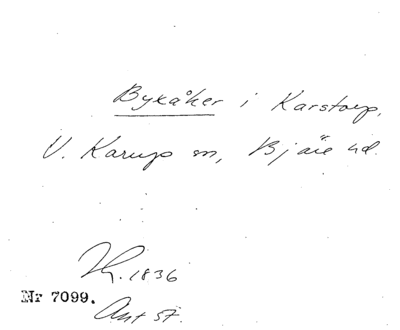 Byxåker i Karstorp,
V. Karup sn, Bjäre hd.
1836
Nr 7099.
Ant st.